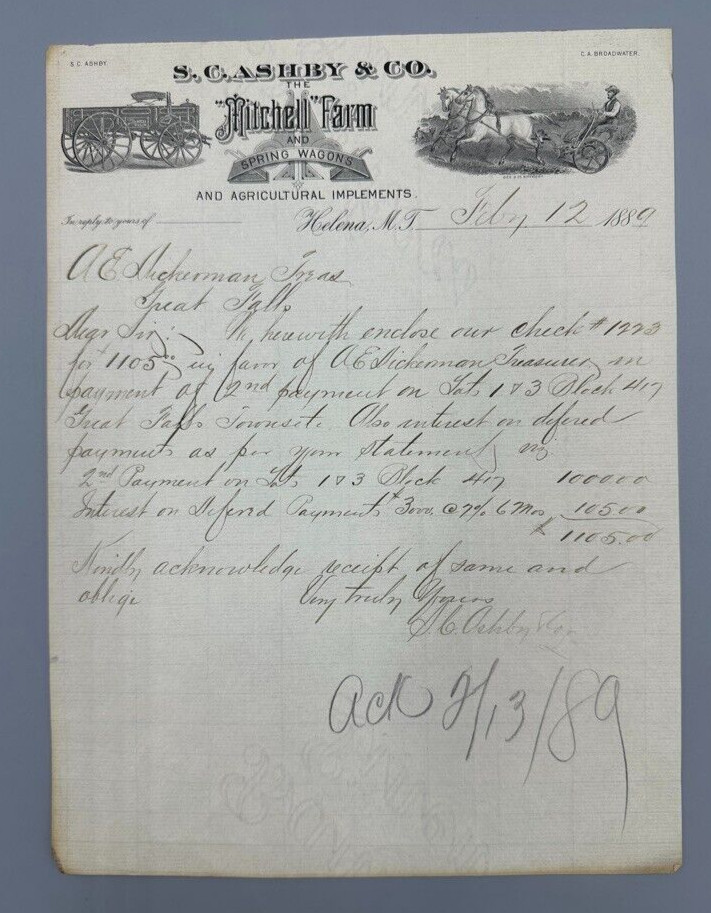 S. C. ASHBY.
C. A. BROADWATER.
S. C. ASHBY & CO.
THE
"Mitchell" Farm
AND
SPRING WAGONS
AND AGRICULTURAL IMPLEMENTS.
In reply to yours of
Helena, M.T. Feby 12 1889
A E Dickerman Treas
Great Falls
Dear Sir: We herewith enclose our check #1223
for $1105.00 in favor of A E Dickerman Treasurer, in
payment of 2nd payment on Lots 1 & 3 Block 417
Great Falls Townsite. Also interest on defered
payments as per your statement, viz
2nd Payment on Lots 1 & 3 Block 417 1000.00
Interest on Deferd Payments $3000. @ 7% 6 Mos 105.00
$ 1105.00
Kindly acknowledge receipt of same and
oblige Very truly Yours
S. C. Ashby & Co
Ack 2/13/89